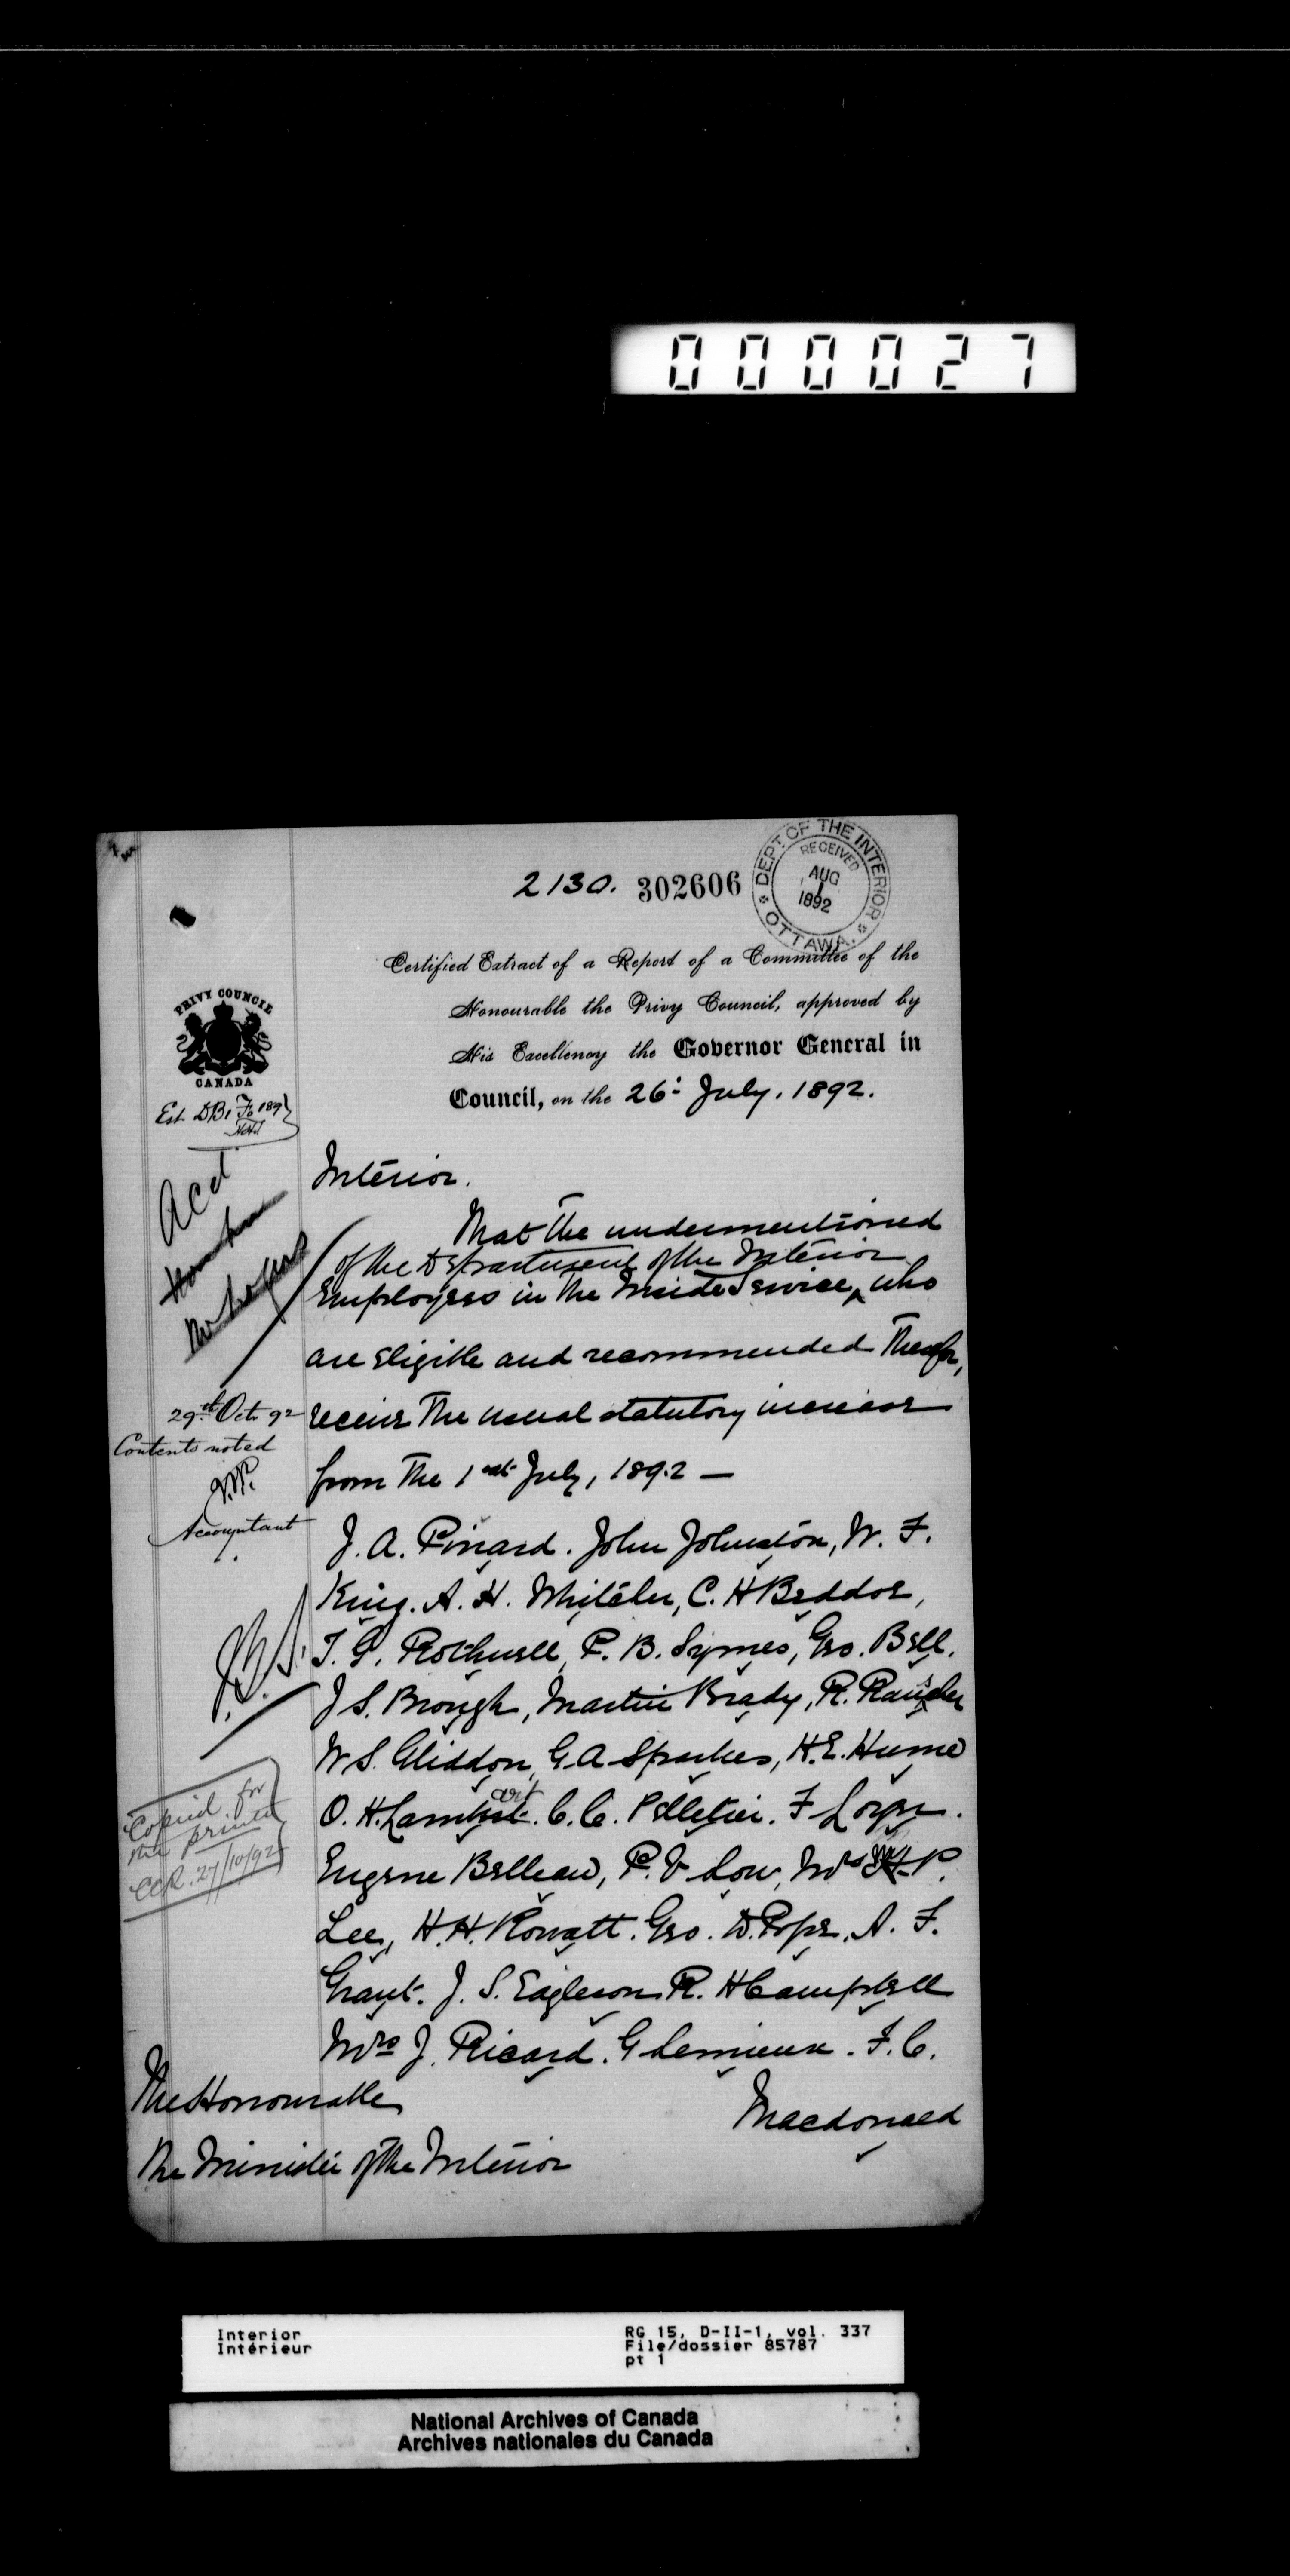 000027
2130. 302606
DEPT. OF THE INTERIOR
RECEIVED
AUG
1
1892
OTTAWA.
Certified Extract of a Report of a Committee of the
Honourable the Privy Council, approved by
His Excellency the Governor General in
Council, on the 26th July, 1892.
PRIVY COUNCIL
CANADA
Interior.
That the undermentioned
of the Department of the Interior
Employees in the Inside Service, who
are eligible and recommended therefor,
receive the usual statutory increase
from the 1st July, 1892 —
J. A. Pinard. John Johnston, W. F.
King. A. H. Whitcher, C. H Beddoe,
T. G. Rothwell, P. B. Symes, Geo. Bell.
J S. Brough, Martin Brady, R. Rauscher
W S. Gliddon, G. A Sparkes, H. E. Hume
O. H. Lambart. C. C. Pelletier. F Loyer.
Eugene Belleau, P. V Low, Mrs P.
Lee, H. H. Rowatt. Geo. D. Pope. A. F.
Grant. J. S. Eagleson R. H Campbell
Mrs J. Ricard. G Lemieux. F. C.
Macdonald
Acd
29th Oct. 92
Contents noted
Accountant
Copied for
the printer
CCR. 27/10/92
The Honourable
The Minister of the Interior
Interior
Intérieur
RG 15, D-II-1, vol. 337
File/dossier 85787
pt 1
National Archives of Canada
Archives nationales du Canada